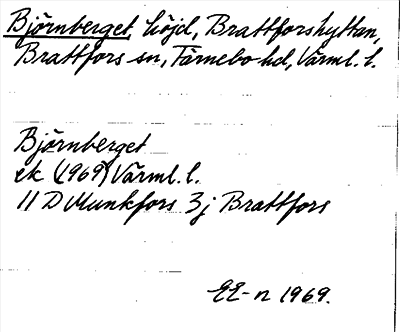 Björnberget, höjd, Brattforshyttan,
Brattfors sn, Färnebo hd, Värml. l.
Björnberget
ek (1969) Värml. l.
11 D Munkfors 3j Brattfors
EE-n 1969.